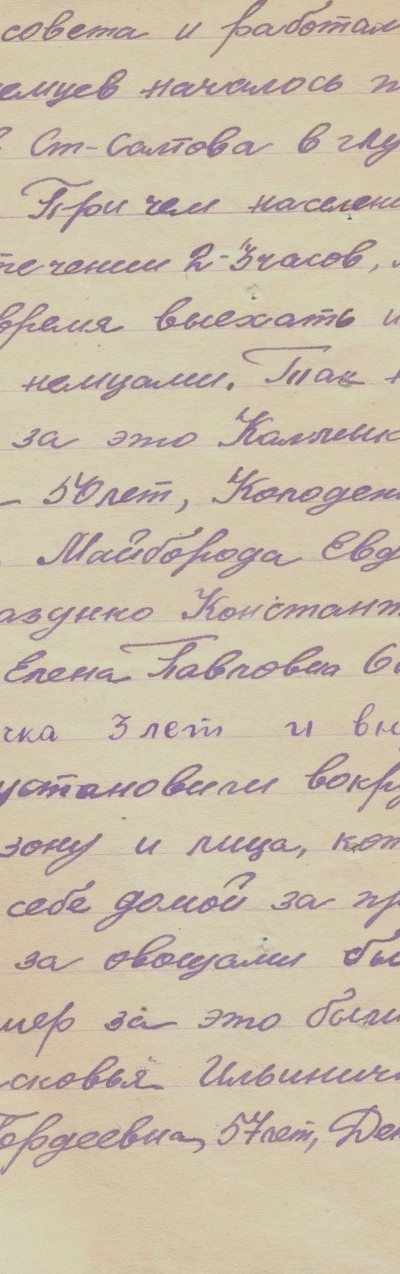 совета и работам
емцев началось п
Ст-Салтова в глу
Причем населени
течении 2-3 часов,
время выехать и
немцами. Так н
за это Калмык
50 лет, Колоден
Майборода Евд
азунко Константи
Елена Павловна 6
чка 3 лет и вн
установили вокру
зону и лица, кот
себе домой за пр
за овощами бы
мер за это были
сковья Ильинич
Гордеевна, 57 лет, Ден